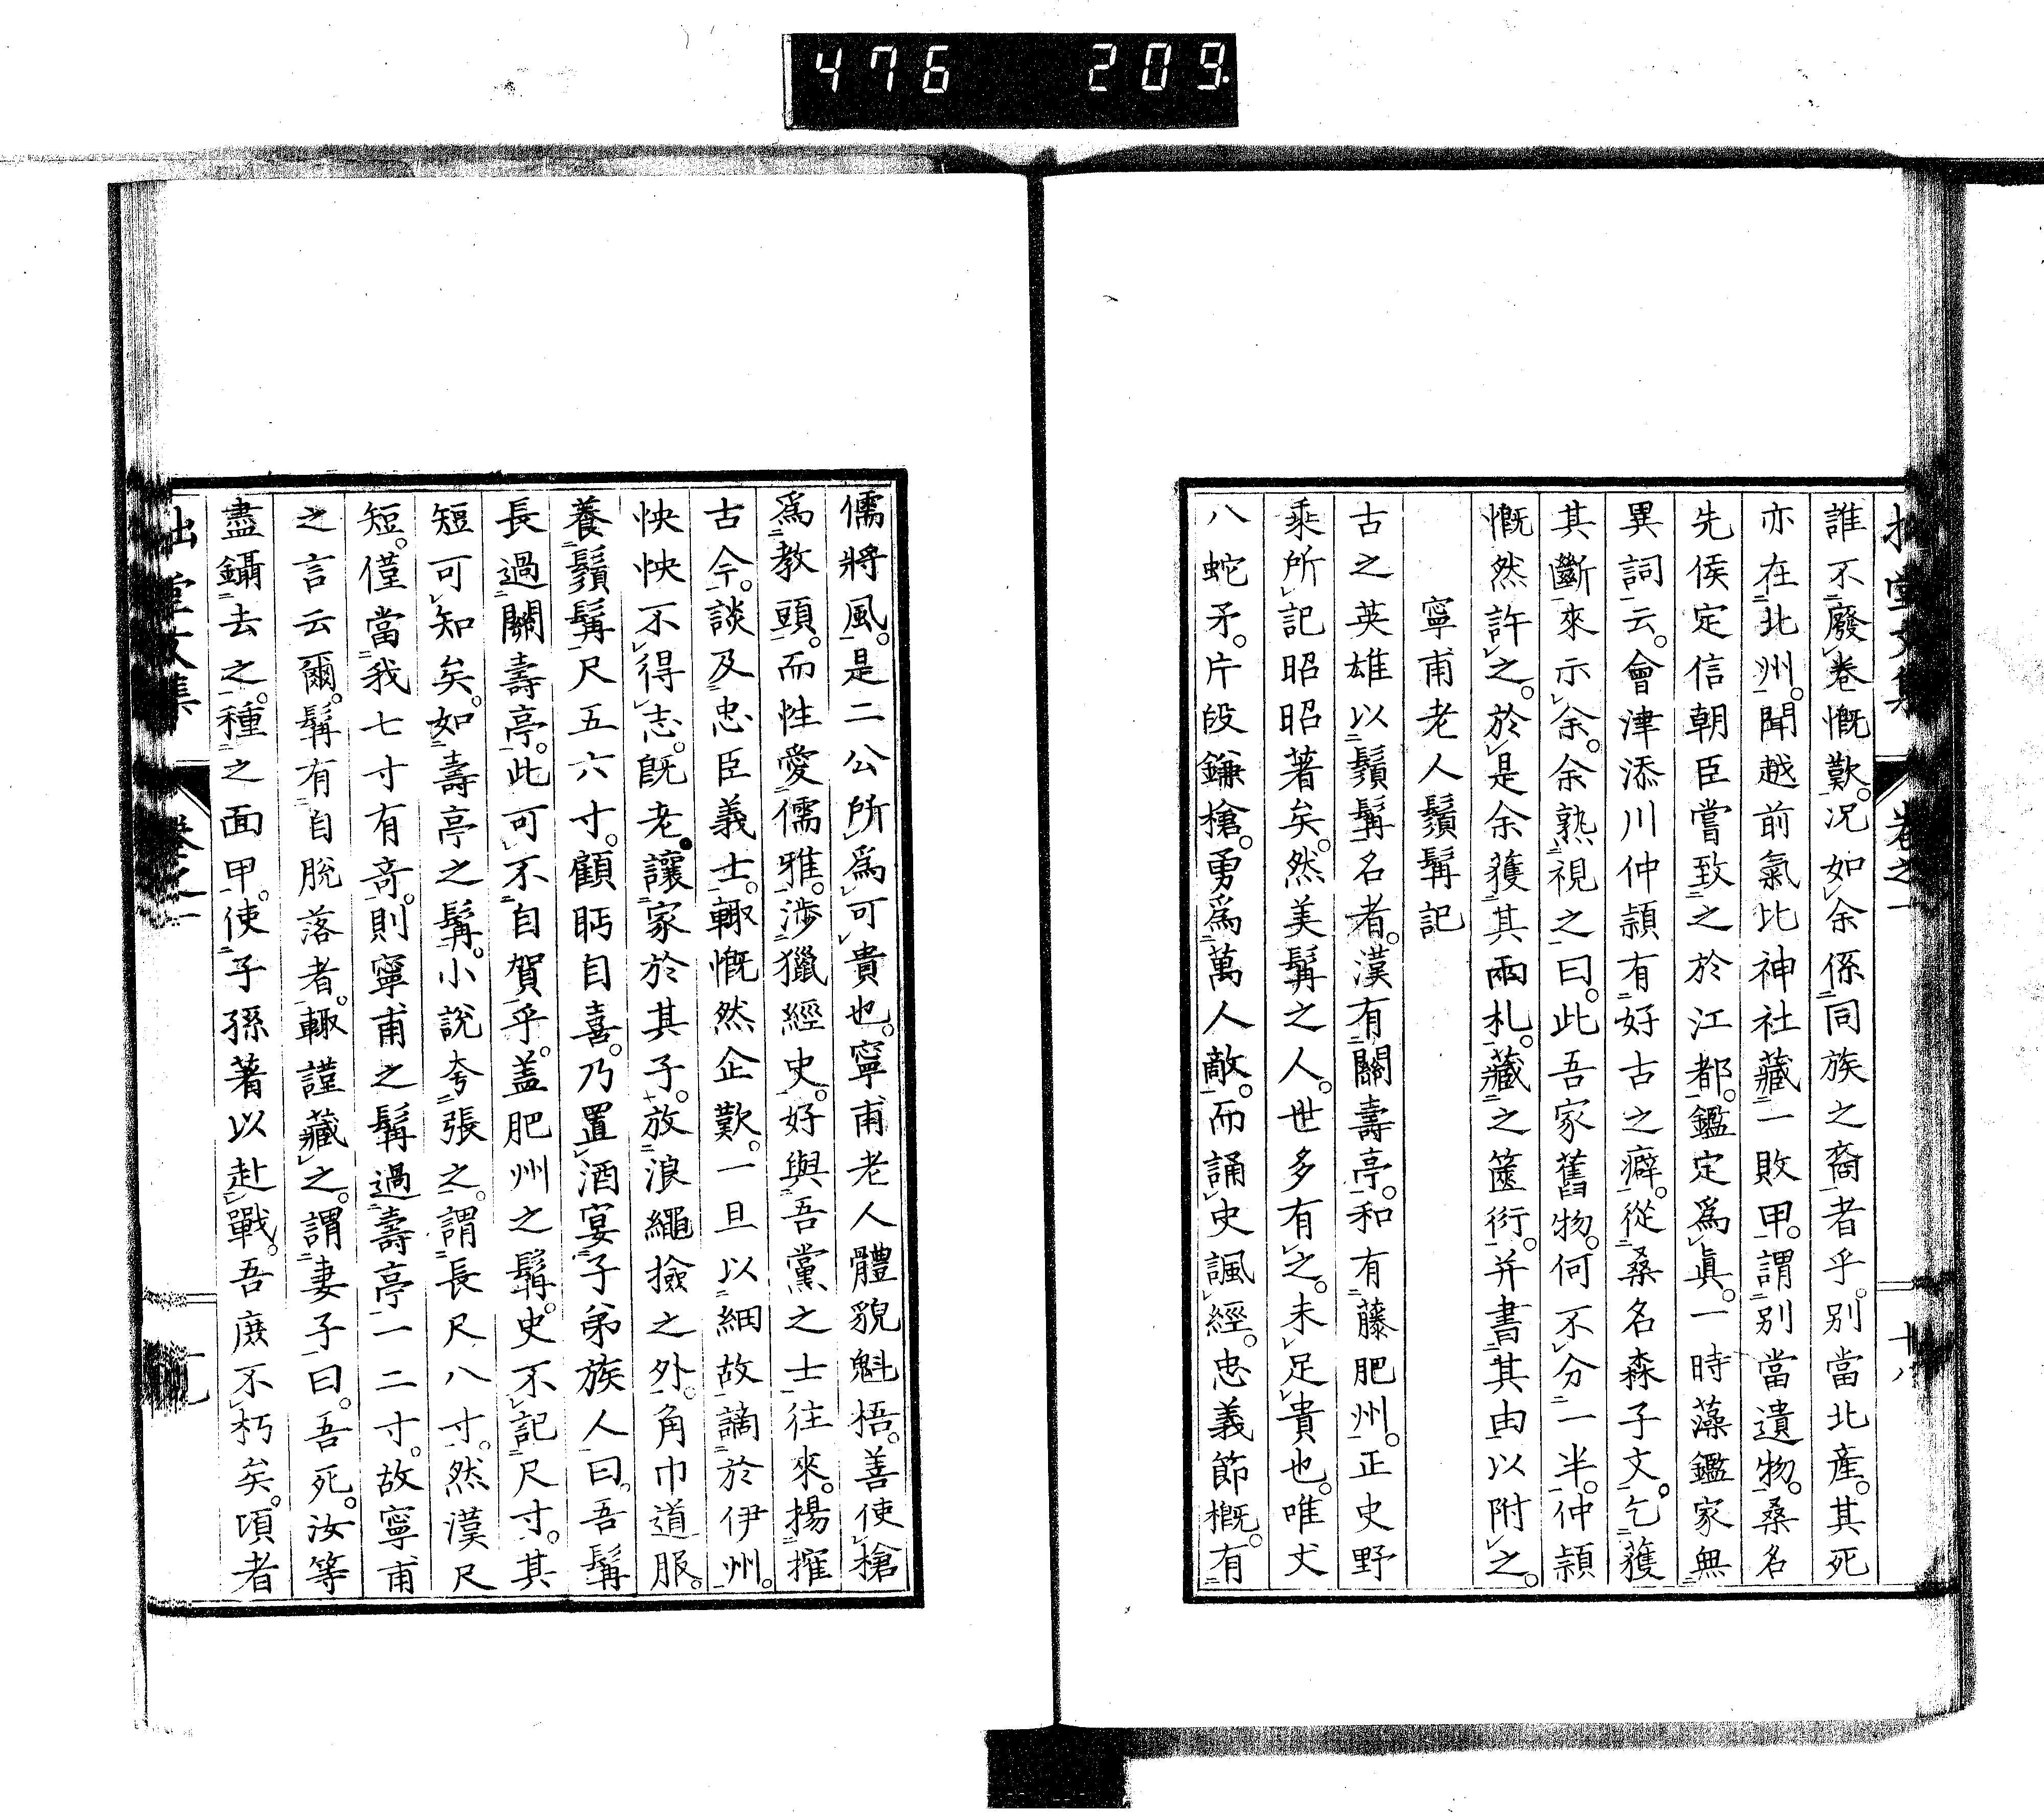 476 209
誰不廢卷慨歎。况如余係同族之裔者乎。別當北產。其死
亦在北州。聞越前氣比神社藏一敗甲。謂別當遺物。桑名
先侯定信朝臣嘗致之於江都。鑑定爲眞。一時藻鑑家無
異詞云。會津添川仲頴有好古之癖。從桑名森子文。乞獲
其斷來示余。余熟視之曰。此吾家舊物。何不分一半。仲頴
慨然許之。於是余獲其兩札。藏之篋衍。并書其由以附之。
寧甫老人鬚髯記
古之英雄以鬚髯名者。漢有關壽亭。和有藤肥州。正史野
乘所記昭昭著矣。然美髯之人。世多有之。未足貴也。唯丈
八蛇矛。片段鎌槍。勇爲萬人敵。而誦史諷經。忠義節概。有
儒將風。是二公所爲可貴也。寧甫老人體貌魁梧。善使槍
爲教頭。而性愛儒雅。涉獵經史。好與吾黨之士往來。揚搉
古今。談及忠臣義士。輙慨然企歎。一旦以細故謫於伊州。
怏怏不得志。旣老。讓家於其子。放浪繩撿之外。角巾道服。
養鬚髯尺五六寸。顧眄自喜。乃置酒宴子弟族人曰。吾髯
長過關壽亭。此可不自賀乎。盖肥州之髯。史不記尺寸。其
短可知矣。如壽亭之髯。小說夸張之。謂長尺八寸。然漢尺
短。僅當我七寸有奇。則寧甫之髯過壽亭一二寸。故寧甫
之言云爾。髯有自脫落者。輙謹藏之。謂妻子曰。吾死。汝等
盡鑷去之。種之面甲。使子孫著以赴戰。吾庶不朽矣。頃者
拙堂文集 卷之一